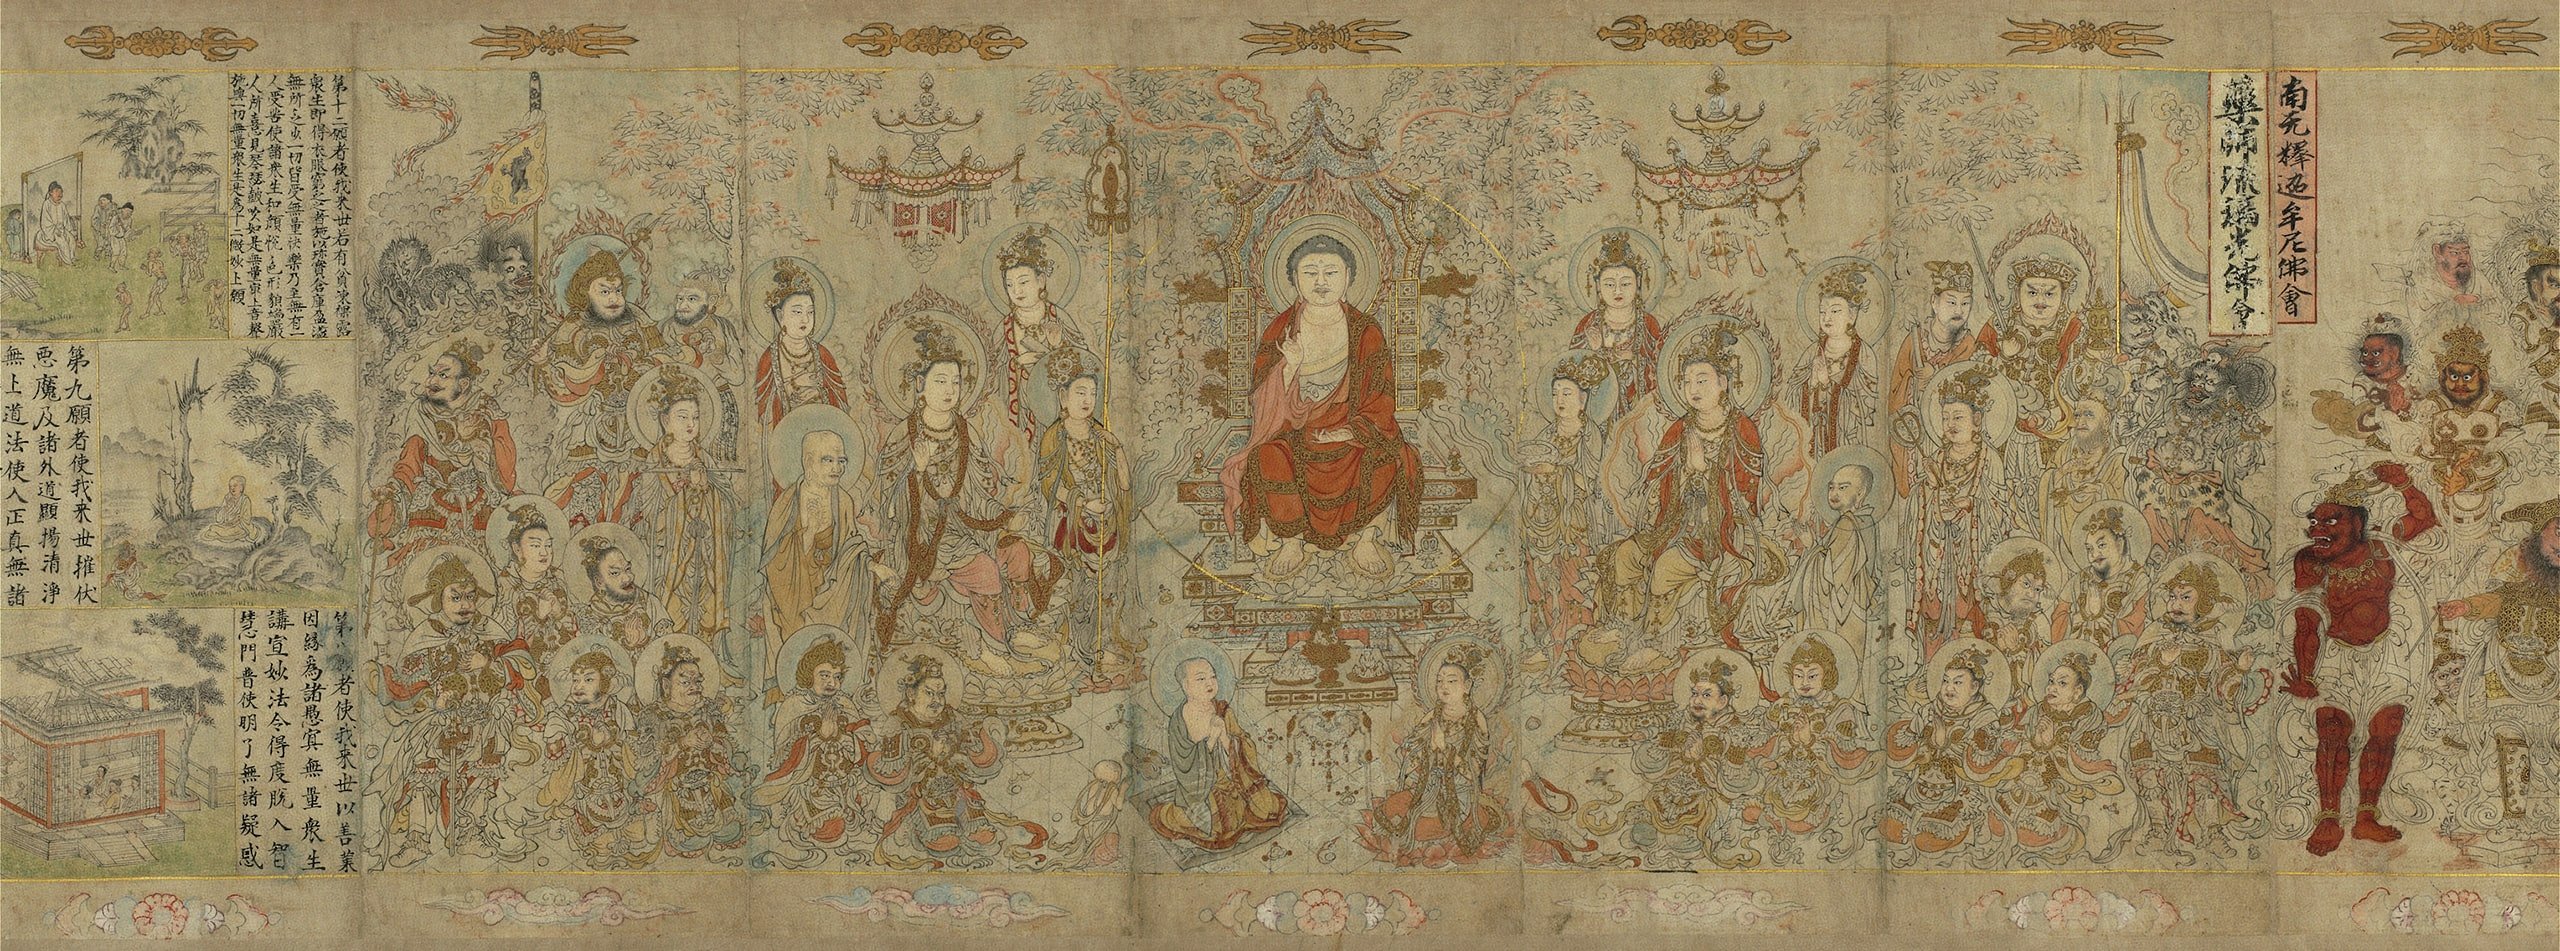 南无釋迦牟尼佛會
藥師琉璃光佛會
第十二願者使我來世若有貧凍裸露
眾生即得衣服窮乏之者施以珍寶倉庫盈溢
無所乏少一切皆受無量快樂乃至無有一
人受苦使諸眾生和顏悅色形貌端嚴
人所憙見琴瑟鼓吹如是無量最上音聲
施與一切無量眾生是為十二微妙上願
第九願者使我來世摧伏
惡魔及諸外道顯揚清淨
無上道法使入正真無諸
第者使我來世以善業
因緣為諸愚冥無量眾生
講宣妙法令得度脫入智
慧門普使明了無諸疑惑